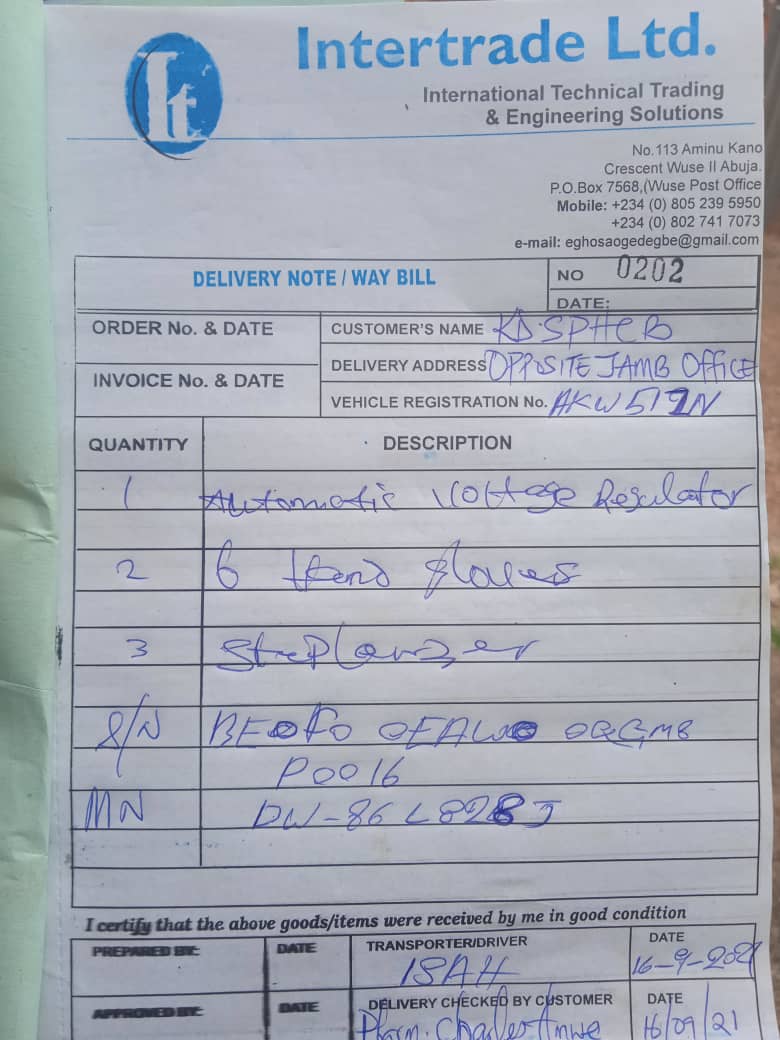 It
Intertrade Ltd.
International Technical Trading
& Engineering Solutions
No.113 Aminu Kano
Crescent Wuse II Abuja.
P.O.Box 7568,(Wuse Post Office
Mobile: +234 (0) 805 239 5950
+234 (0) 802 741 7073
e-mail: eghosaogedegbe@gmail.com
DELIVERY NOTE / WAY BILL
NO 0202
DATE:
ORDER No. & DATE
CUSTOMER'S NAME KD.SPHCB
DELIVERY ADDRESS OPPOSITE JAMB OFFICE
INVOICE No. & DATE
VEHICLE REGISTRATION No.
QUANTITY DESCRIPTION
1 Automatic Voltage Regulator
2 6 Hand gloves
3
S/N
P0016
MN
I certify that the above goods/items were received by me in good condition
PREPARED BY: DATE TRANSPORTER/DRIVER DATE
ISAH 16-9-2021
APPROVED BY: DATE DELIVERY CHECKED BY CUSTOMER DATE
Pharm. Charles 16/09/21